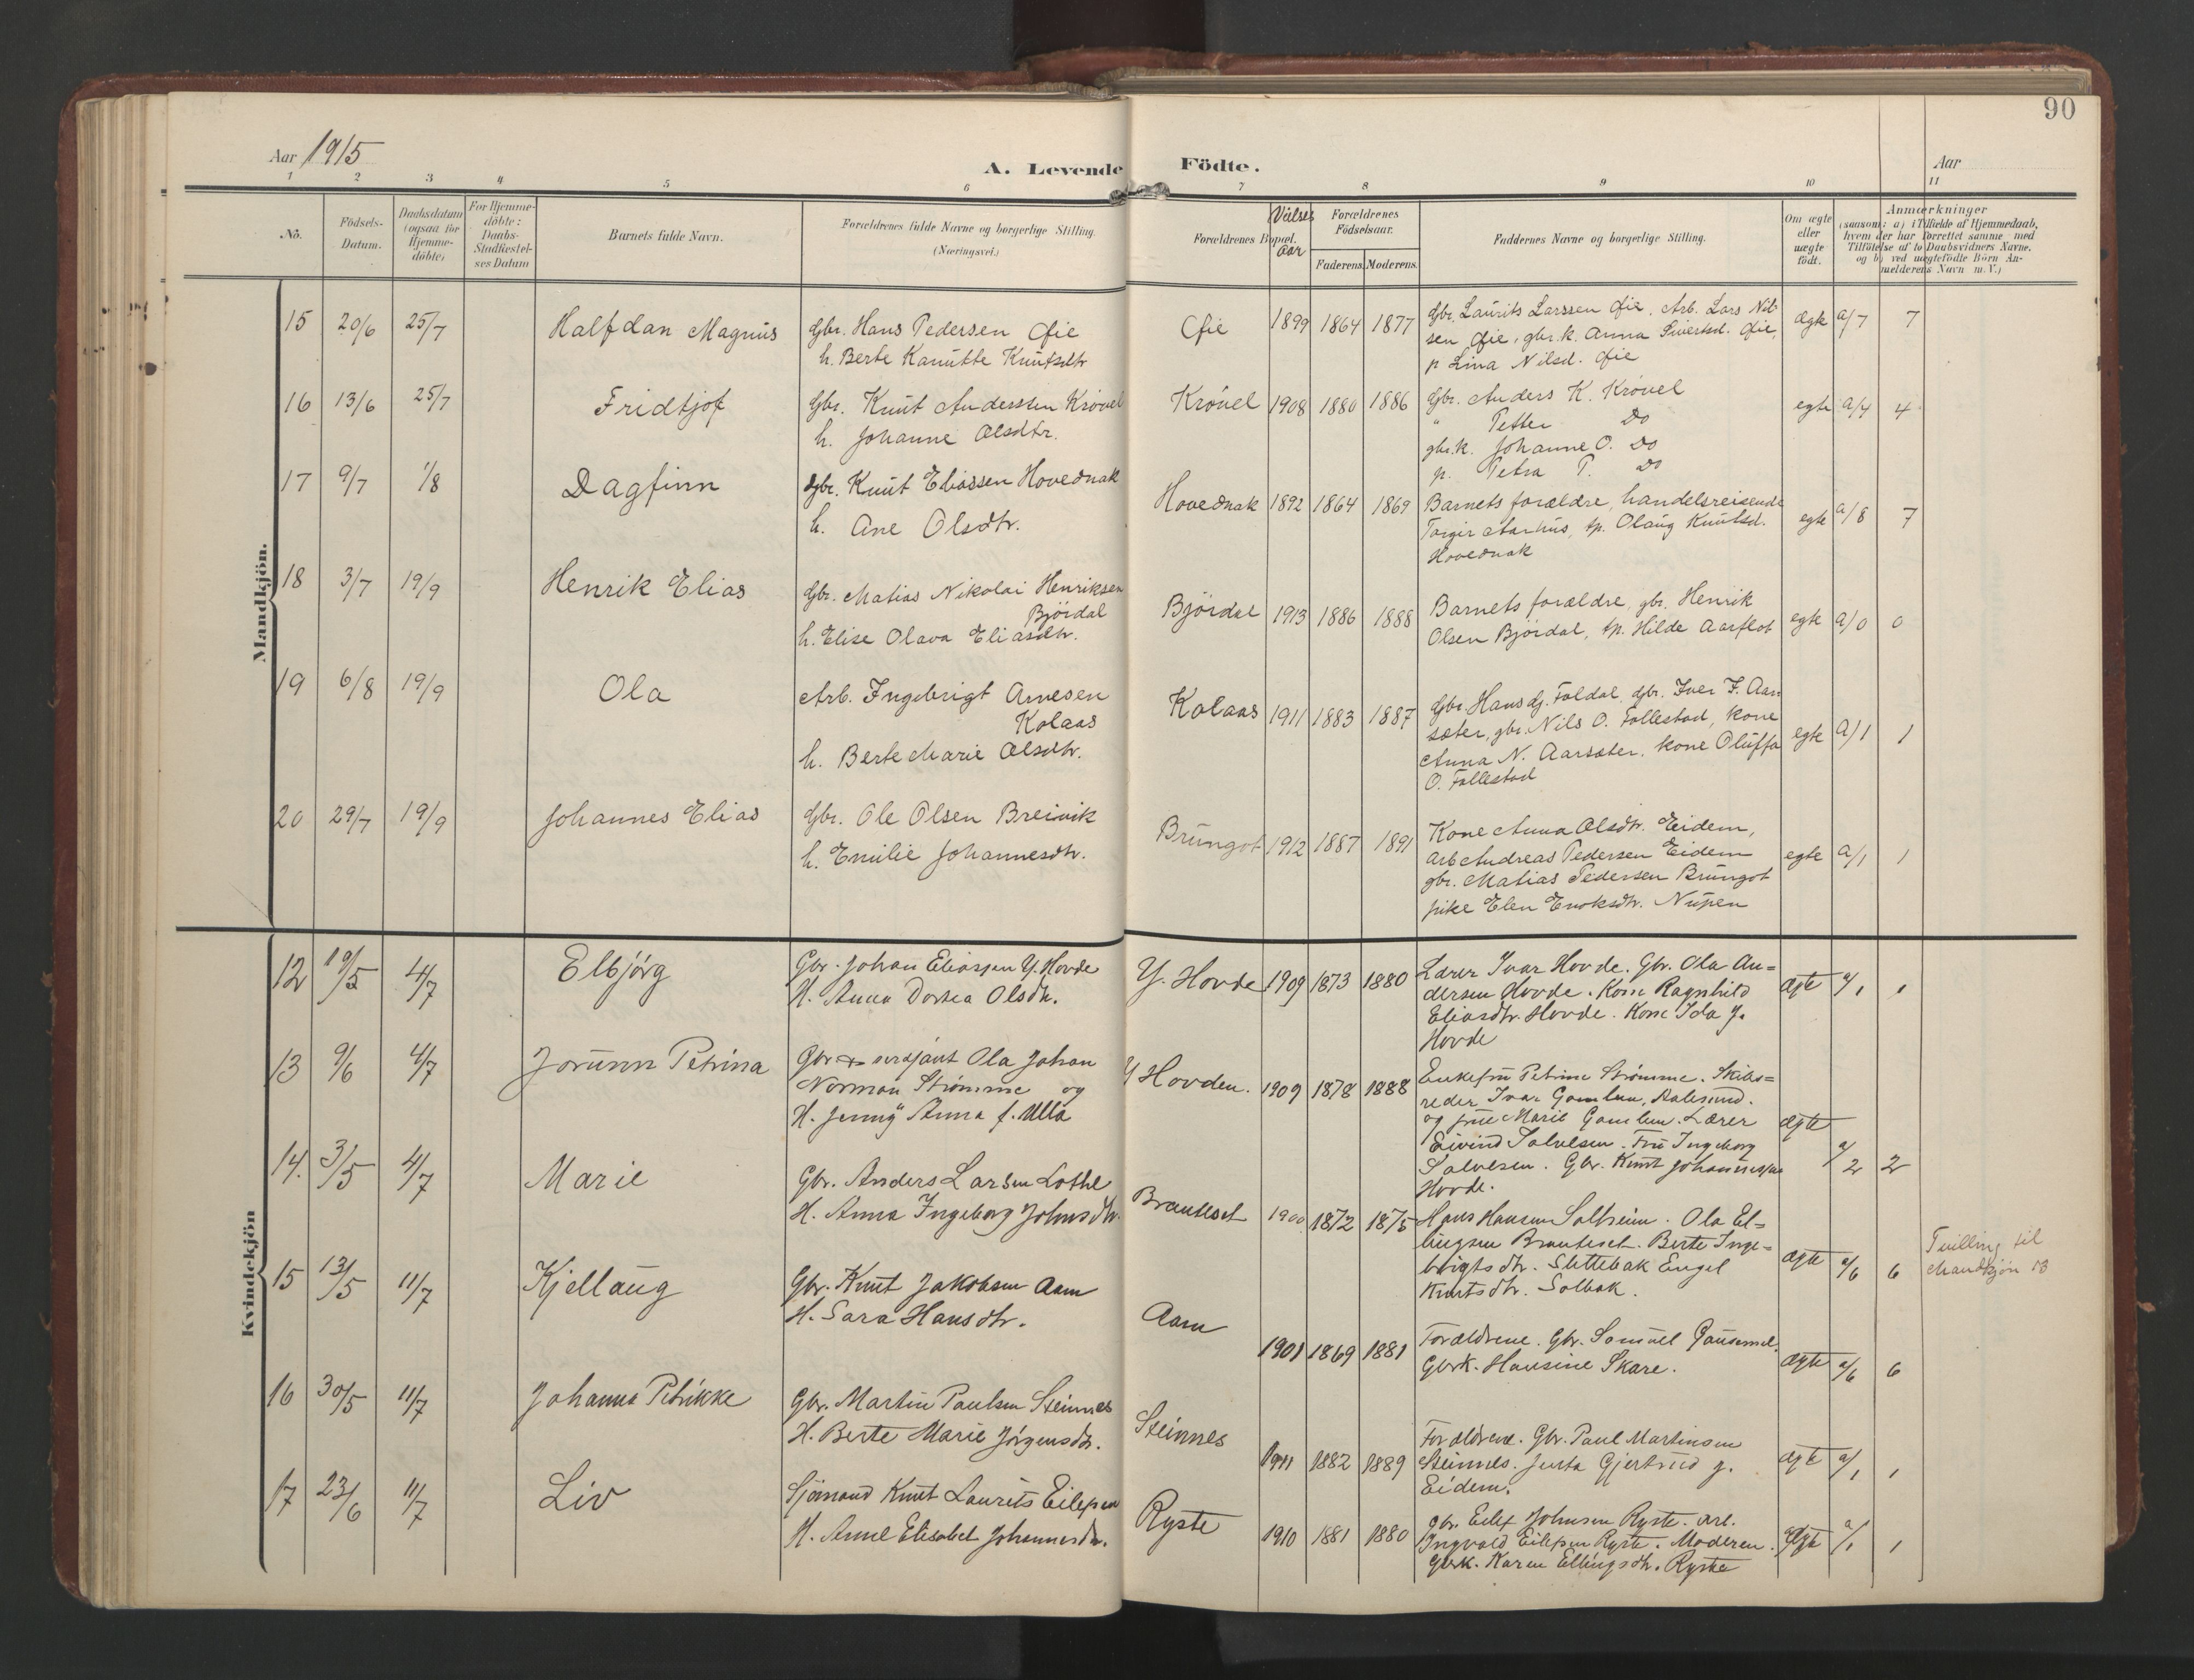 90
Aar 1915
A. Levende Födte.
Aar
1 2 3 4 5 6 7 8 9 10 11
No.
Födsels-
Datum.
Daabsdatum
(ogsaa for
Hjemme-
döbte)
For Hjemme-
döbte:
Daabs-
Stadfæstel-
ses Datum
Barnets fulde Navn.
Forældrenes fulde Navne og borgerlige Stilling.
(Næringsvei.)
Forældrenes Bopæl.
Vielses
aar
Forældrenes
Födselsaar.
Faderens. Moderens.
Faddernes Navne og borgerlige Stilling.
Om ægte
eller
uægte
födt.
Anmærkninger
(saasom: a) i Tilfælde af Hjemmedaab,
hvem der har forrettet samme med
Tilföielse af to Daabsvidners Navne,
og b) ved uægtefödte Börn An-
melderens Navn m. V.)
Mandkjön.
15 20/6 25/7 Halfdan Magnus
Gbr. Hans Pedersen Øie
h. Berte Kanutte Knutsdtr
Øie 1899 1864 1877
Gbr. Laurits Larssen Øie. Arb. Lars Nil-
sen Øie, gbr.k. Anna Sivertsd. Øie,
p Lina Nilsd. Øie
ægte a/7 7
16 13/6 25/7 Fridtjof
Gbr. Knut Anderssen Krövel
h. Johanne Olsdtr.
Krövel 1908 1880 1886
Gbr. Anders K. Krövel
" Petter Do
gbr.k. Johanne O. Do
p. Petra P. Do
egte a/4 4
17 9/7 1/8 Dagfinn
Gbr. Knut Eliassen Hovednak
h. Ane Olsdtr.
Hovednak 1892 1864 1869
Barnets forældre, handelsreisende
Torgir Aarhus, tp. Olaug Knutsd.
Hovednak
egte a/8 7
18 3/7 19/9 Henrik Elias
Gbr. Matias Nikolai Henriksen
Björdal
h. Elise Olava Eliasdtr.
Björdal 1913 1886 1888
Barnets forældre, gbr. Henrik
Olsen Björdal, tp. Hilde Aarflot
egte a/0 0
19 6/8 19/9 Ola
Arb. Ingebrigt Arnesen
Kolaas
h. Berte Marie Olsdtr.
Kolaas 1911 1883 1887
Gbr. Hans G. Foldal, gbr. Iver F. Aar
sæter, gbr. Nils O. Follestad, kone
Anna N. Aarsæter, kone Oluffa
O. Follestad
egte a/1 1
20 29/7 19/9 Johannes Elias
Gbr. Ole Olsen Breivik
h. Emilie Johannesdtr.
Brungot 1912 1887 1891
Kone Anna Olsdtr. Eidem,
arb Andreas Pedersen Eidem
gbr. Matias Pedersen Brungot
pike Elen Enoksdtr. Nupen
egte a/1 1
Kvindekjön
12 19/5 4/7 Elbjörg
Gbr. Johan Eliassen Y. Hovde
H. Anna Dortea Olsdtr.
Y. Hovde 1909 1873 1880
Lærer Ivar Hovde. Gbr. Ola An=
dersen Hovde. Kone Ragnhild
Eliasdtr. Hovde. Kone Ida J.
Hovde
ægte a/1 1
13 9/6 4/7 Jorunn Petrina
Gbr & serdjant Ola Johan
Norman Strömme og
H. Jenny Anna f. Ulla
Y Hovden. 1909 1878 1888
Enkefru Petrine Strömme. Skibs=
reder Ivar Gamlem, Aalesund.
og frue Marie Gamlem. Lærer
Eivind Salvesen. Fru Ingeborg
Salvesen. Gbr. Knut Johannessen
Hovde.
ægte a/2 2
14. 3/5 4/7 Marie
Gbr. Anders Larsen Lothe
H. Anna Ingeborg Johnsdtr.
Brauteset 1900 1872 1875
Hans Hansen Solheim. Ola El=
lingsen Brauteset. Berte Inge=
brigtsdtr. Slettebak Engel
Knutsdtr. Solbak.
ægte a/6 6
Tvilling til
Mandkjön 13
15 13/5 11/7 Kjellaug
Gbr. Knut Jakobsen Aam
H. Sara Hansdtr.
Aam 1901 1869 1881
Forældrene. Gbr. Samuel
Gbrk. Hansine Skare.
ægte a/6 6
16 30/5 11/7 Johanna Petrikke
Gbr. Martin Paulsen Steinnes
H. Berte Marie Jörgensdtr.
Steinnes 1911 1882 1889
Forældrene. Gbr. Paul Martinsen
Steinnes. Gjertrud J.
Eidem.
ægte a/1 1
17 23/6 11/7 Liv
Sjömand Knut Laurits Eilefsen
H. Anne Elisabet Johannesdtr.
Ryste 1910 1881 1880
Gbr. Eilef Johnsen Ryste. arb.
Ingvald Eilefsen Ryste. Moderen.
Gbrk. Karen Ellingsdtr. Ryste
ægte a/1 1